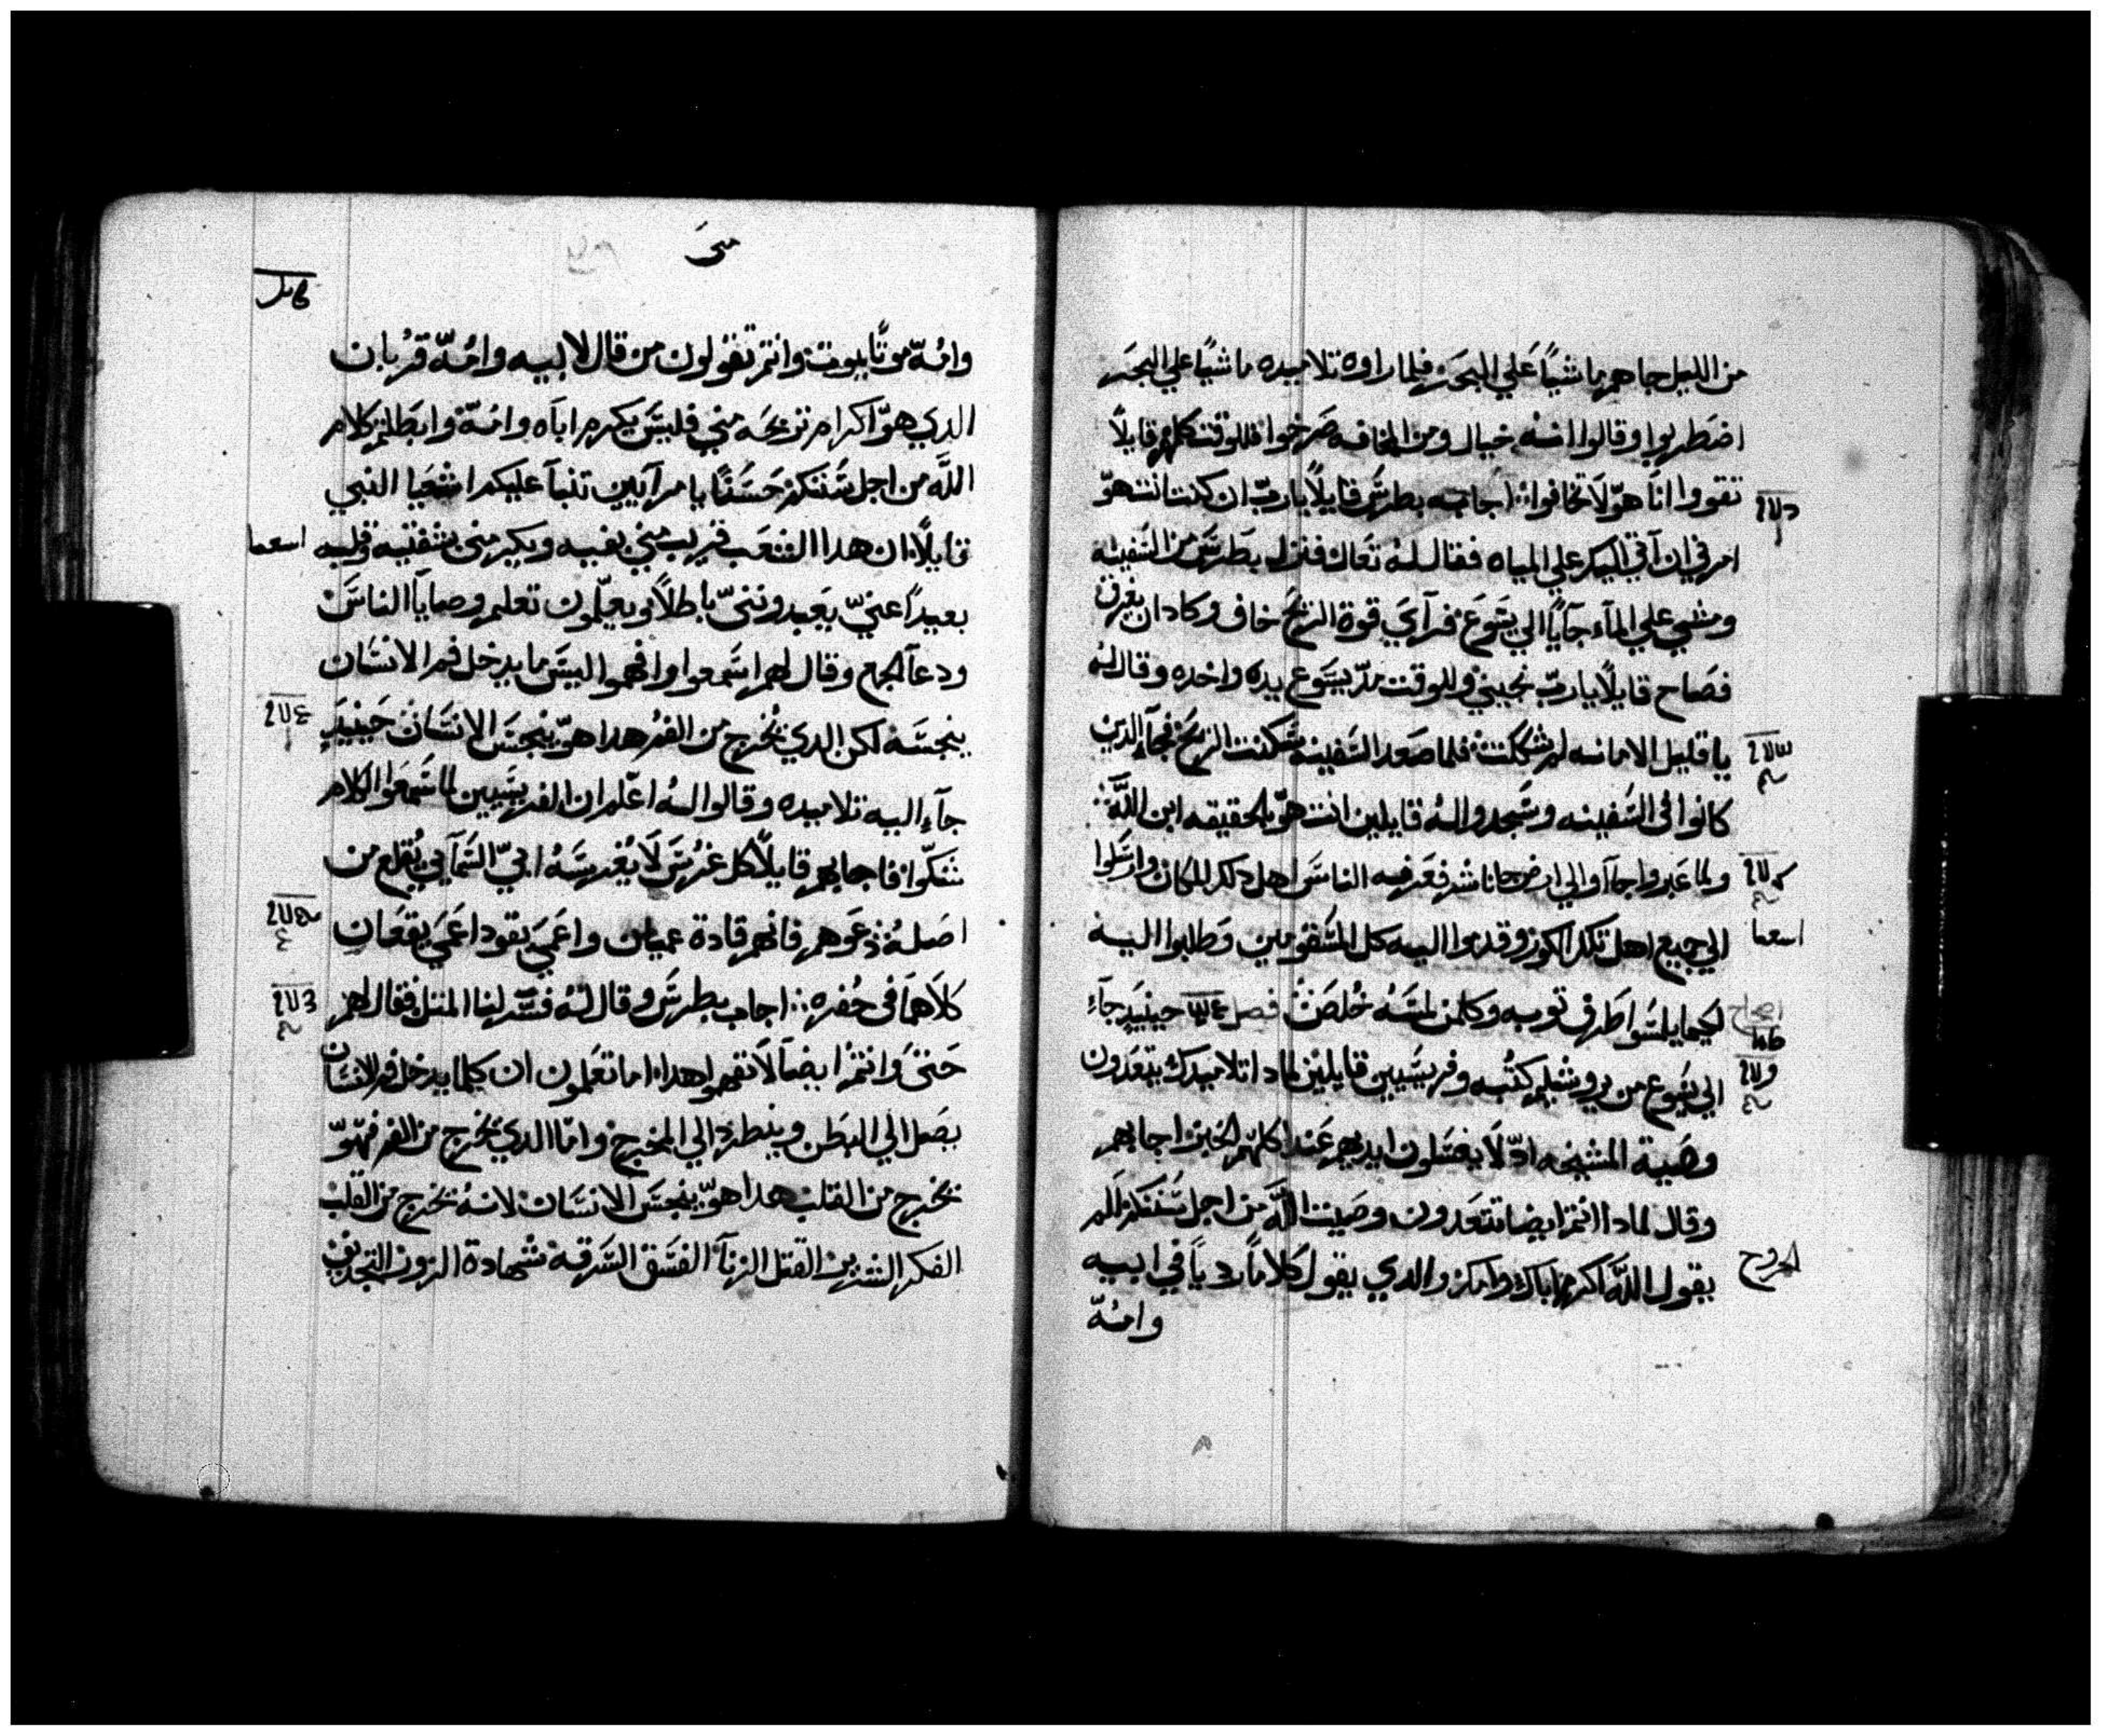 من الليل جاهم ماشيًا علي البحر فلما راوه تلاميده ماشيًا علي البحر
اضطربوا وقالوا انه خيال ومن المخافه صرخوا فللوقت كلمهم قايلًا
تقووا انا هوّ لا تخافوا اجابه بطرس قايلًا يارب ان كنت انت هوّ
امرني ان آتي اليك علي المياه فقال له تعال فنزل بطرس من السفينه
ومشي علي المآء جآيًا الي يسوع فرآي قوة الريح خاف وكاد ان يغرق
فصاح قايلًا يارب نجيني وللوقت مدّ يسوع يده واخده وقال له
يا قليل الامانه لم شككت فلما صعد السفينه سكنت الريح فجآء الدين
كانوا في السفينه وسجدوا له قايلين انت هوّ بالحقيقه ابن الله
ولما عبروا جآوا الي ارض جاناشر فعرفه الناس اهل دلك المكان وارسلوا
اسعيا
الي جميع اهل تلك الكوز وقدموا اليه كل المسقومين وطلبوا اليه
لكيما يلمسوا طرف توبه وكلمن لمسه خُلص فصل حينيدٍ جآء
اصحاح
الي يسوع من يروشليم كتبه وفريسيين قايلين لمادا تلاميدك يتعدون
وصية المشيخه ادّ لا يغسلون ايديهم عند اكلهم الخبز اجابهم
وقال لمادا انتم ايضا تتعدون وصيت الله من اجل سننكم الم
يقول الله اكرم اباك وامك والدي يقول كلامًا رديًا في ابيه
الخروج
وامّه
متى
وامّه موتًا يموت وانتم تقولون من قال لابيه وامّه قربان
الدي هوّ اكرام تربحه مني فليس يكرم اباه وامّه وابطلتم كلام
الله من اجل سننكم حسنًا يا مرآيين تنبآ عليكم اشعيا النبي
قايلًا ان هدا الشعب قريب مني بفيه ويكرمني بشفتيه وقلبه
اسعيا
بعيدًا عنيّ يعبدوننيّ باطلًا ويعلّمون تعليم وصايا الناس
ودعآ الجمع وقال لهم اسمعوا وافهموا ليس ما يدخل فم الانسان
ينجسه لكن الدي يخرج من الفم هدا هوّ ينجس الانسان حينيدٍ
جآء اليه تلاميده وقالوا له اعلم ان الفريسيين لما سمعوا الكلام
شكّوا فاجابهم قايلًا كل غرس لا يغرسه ابيّ السمآيي يقلع من
اصله دعوهم فانهم قادة عميان واعمي يقود اعمي يقعان
كلاهما في حفره اجاب بطرس وقال له فسّر لنا المتل فقال لهم
حتى وانتم ايضا لا تفهموا هدا اما تعلمون ان كلما يدخل فم الانسان
يصل الي البطن وينطرد الي المخرج وامّا الدي يخرج من الفم فهوّ
يخرج من القلب هدا هوّ ينجس الانسان لانه يخرج من القلب
الفكر الشرير القتل الزنآ الفسق السرقه شهادة الزور التجديف